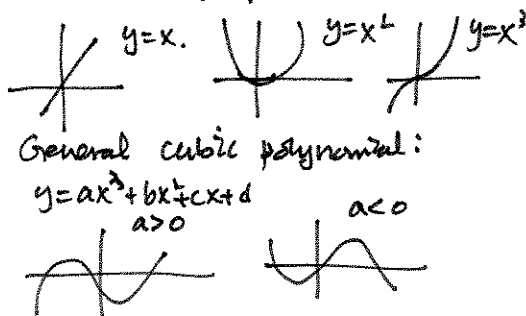 y=x. y=x² y=x³
General cubic polynomial:
y=ax³+bx²+cx+d
a>0 a<0